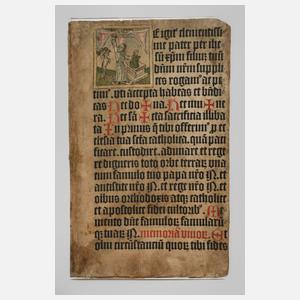 E igit᷑ clementissi-
me pater per ihe-
sū xp̄m filiū tuū
dn̄m nr̄m suppli-
ces rogam᷒ ac pe-
tim᷒. vti accepta habeas et bn̄di-
cas Hec do✠na. Hec mu✠ne-
ra. Hec sā✠cta sacrificia illiba-
ta In primis q̄ tibi offerim᷒ ꝓ ec-
clesia tua sctā catholica. quā pa-
cificare. custodire. adunare et rege-
re digneris toto orbe terraꝝ vna
cum famulo tuo papa nr̄o N. et
antistite nr̄o N. et rege nr̄o N. et
oībus orthodoxis atqꝫ catholice
et apostolice fidei cultoribꝰ. Me-
mento dn̄e famuloꝝ famularū-
qꝫ tuaꝝ N. memoria viuoꝝ. Et
oīm circūstanciū quoꝝ tibi fides